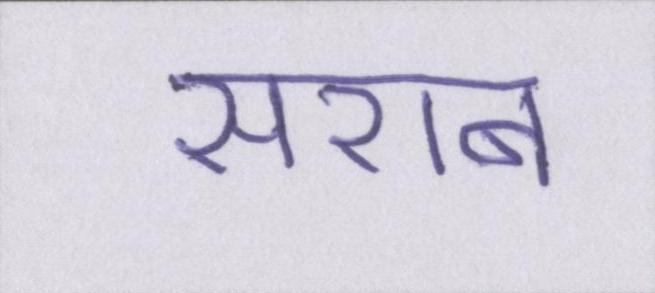 सराब